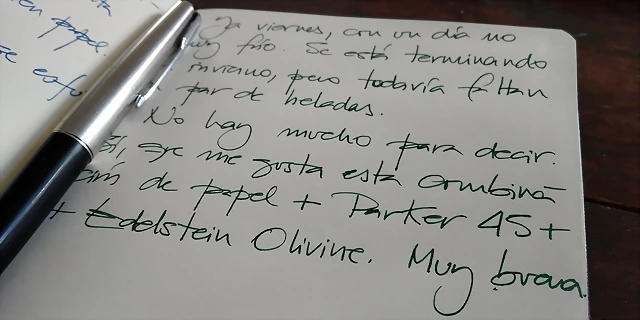 en papel.
Ya viernes, con un día no
muy frío. Se está terminando
invierno, pero todavía faltan
par de heladas.
No hay mucho para decir.
Sí, que me gusta esta combina-
ción de papel + Parker 45 +
+ Edelstein Olivine. Muy brava.